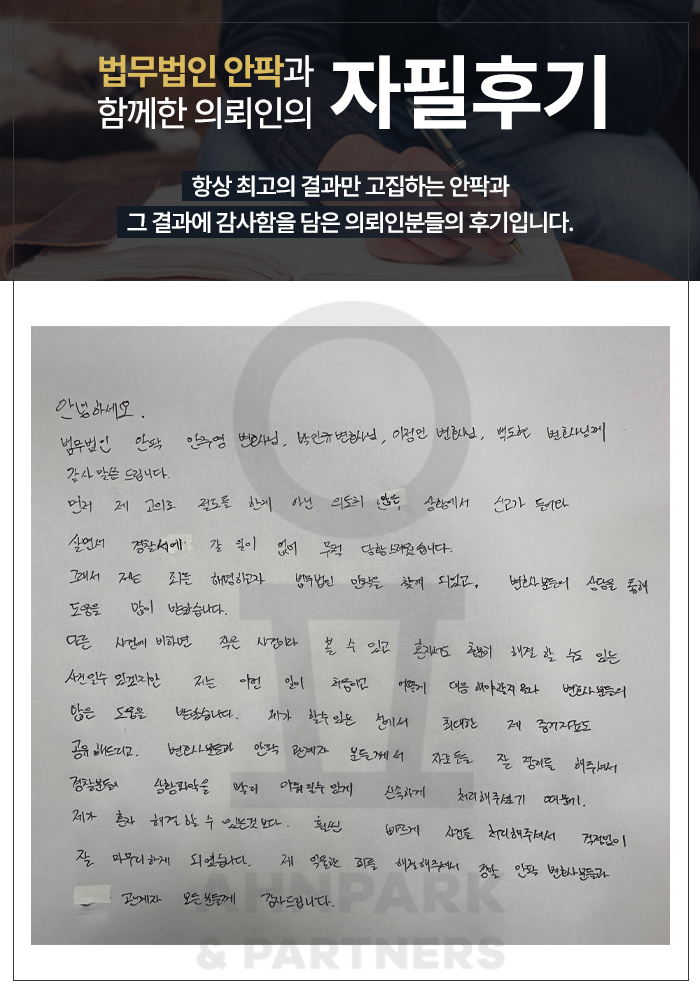 법무법인 안팍과
함께한 의뢰인의
자필후기
항상 최고의 결과만 고집하는 안팍과
그 결과에 감사함을 담은 의뢰인분들의 후기입니다.
안녕하세요.
법무법인 안팍 안주영 변호사님, 박민규변호사님, 이정민 변호사님, 백도현 변호사님께
감사 말씀 드립니다.
먼저 제 고의로 절도를 한게 아닌 의도치 않은 상황에서 신고가 들어와
살면서 경찰서에 갈 일이 없어 무척 당황스러웠습니다.
그래서 저는 죄를 해명하고자 법무법인 안팍을 찾게 되었고, 변호사분들의 상담을 통해
도움을 많이 받았습니다.
다른 사건에 비하면 작은 사건이라 볼 수 있고 혼자서도 충분히 해결 할 수도 있는
사건일수 있겠지만 저는 이런 일이 처음이고 어떻게 대응 해야할지 몰라 변호사분들의
많은 도움을 받았습니다. 제가 할수있는 선에서 최대한 제 증거자료도
공유해드리고. 변호사분들과 안팍 관계자 분들께서 자료들을 잘 정리를 해주셔서
경찰분들이 상황파악을 빨리 아실수 있게 신속하게 처리해주셨기 때문에.
제가 혼자 해결 할 수 있는것 보다. 훨씬 빠르게 사건을 처리해주셔서 걱정없이
잘 마무리하게 되었습니다. 제 억울한 죄를 해결해주셔서 정말 안팍 변호사분들과
관계자 모든분들께 감사드립니다.
AHNPARK
& PARTNERS